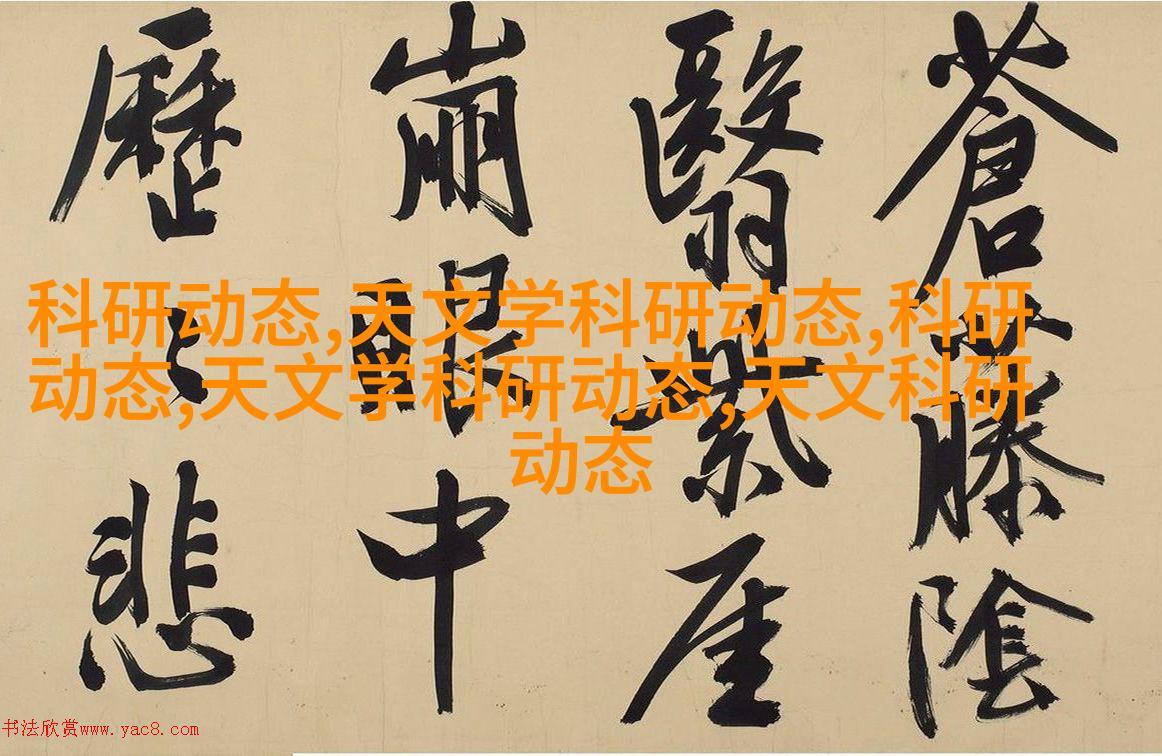 蒼藤陰
翳紫厓
崩眼中
歷〻悲
科研动态,天文学科研动态,科研
动态,天文学科研动态,天文科研
动态
书法欣赏www.yac8.com